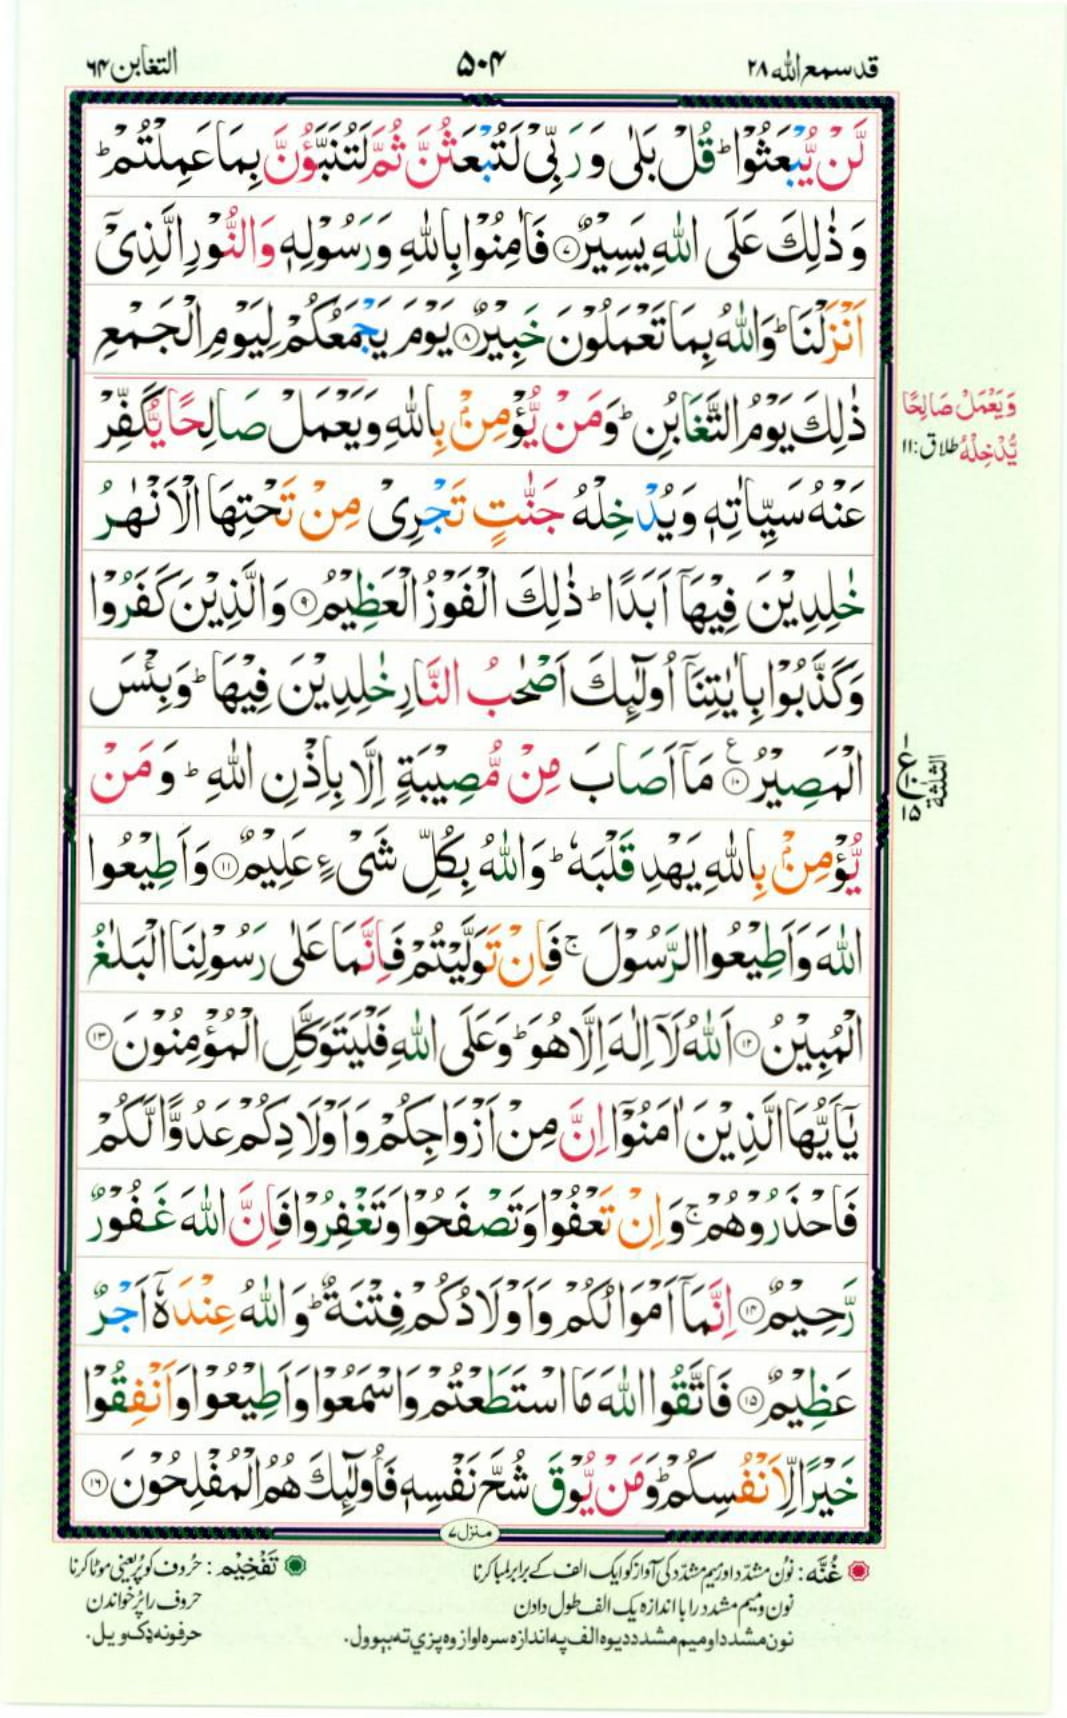 قد سمع الله ۲۸
۵۰۴
التغابن ۶۴
لَّنْ يُّبْعَثُوْا ؕ قُلْ بَلٰى وَ رَبِّىْ لَتُبْعَثُنَّ ثُمَّ لَتُنَبَّؤُنَّ بِمَا عَمِلْتُمْ ؕ
وَ ذٰلِكَ عَلَى اللّٰهِ يَسِيْرٌ ۝۷ فَاٰمِنُوْا بِاللّٰهِ وَ رَسُوْلِهٖ وَالنُّوْرِ الَّذِىْۤ
اَنْزَلْنَا ؕ وَاللّٰهُ بِمَا تَعْمَلُوْنَ خَبِيْرٌ ۝۸ يَوْمَ يَجْمَعُكُمْ لِيَوْمِ الْجَمْعِ
ذٰلِكَ يَوْمُ التَّغَابُنِ ؕ وَمَنْ يُّؤْمِنْۢ بِاللّٰهِ وَيَعْمَلْ صَالِحًا يُّكَفِّرْ
عَنْهُ سَيِّاٰتِهٖ وَيُدْخِلْهُ جَنّٰتٍ تَجْرِىْ مِنْ تَحْتِهَا الْاَنْهٰرُ
خٰلِدِيْنَ فِيْهَاۤ اَبَدًا ؕ ذٰلِكَ الْفَوْزُ الْعَظِيْمُ ۝۹ وَالَّذِيْنَ كَفَرُوْا
وَكَذَّبُوْا بِاٰيٰتِنَاۤ اُولٰٓئِكَ اَصْحٰبُ النَّارِ خٰلِدِيْنَ فِيْهَا ؕ وَبِئْسَ
الْمَصِيْرُ ۝۱۰ ع مَاۤ اَصَابَ مِنْ مُّصِيْبَةٍ اِلَّا بِاِذْنِ اللّٰهِ ؕ وَ مَنْ
يُّؤْمِنْۢ بِاللّٰهِ يَهْدِ قَلْبَهٗ ؕ وَاللّٰهُ بِكُلِّ شَىْءٍ عَلِيْمٌ ۝۱۱ وَاَطِيْعُوا
اللّٰهَ وَاَطِيْعُوا الرَّسُوْلَ ۚ فَاِنْ تَوَلَّيْتُمْ فَاِنَّمَا عَلٰى رَسُوْلِنَا الْبَلٰغُ
الْمُبِيْنُ ۝۱۲ اَللّٰهُ لَاۤ اِلٰهَ اِلَّا هُوَ ؕ وَعَلَى اللّٰهِ فَلْيَتَوَكَّلِ الْمُؤْمِنُوْنَ ۝۱۳
يٰۤاَيُّهَا الَّذِيْنَ اٰمَنُوْۤا اِنَّ مِنْ اَزْوَاجِكُمْ وَاَوْلَادِكُمْ عَدُوًّا لَّكُمْ
فَاحْذَرُوْهُمْ ۚ وَاِنْ تَعْفُوْا وَتَصْفَحُوْا وَتَغْفِرُوْا فَاِنَّ اللّٰهَ غَفُوْرٌ
رَّحِيْمٌ ۝۱۴ اِنَّمَاۤ اَمْوَالُكُمْ وَاَوْلَادُكُمْ فِتْنَةٌ ؕ وَاللّٰهُ عِنْدَهٗۤ اَجْرٌ
عَظِيْمٌ ۝۱۵ فَاتَّقُوا اللّٰهَ مَا اسْتَطَعْتُمْ وَاسْمَعُوْا وَاَطِيْعُوْا وَاَنْفِقُوْا
خَيْرًا لِّاَنْفُسِكُمْ ؕ وَمَنْ يُّوْقَ شُحَّ نَفْسِهٖ فَاُولٰٓئِكَ هُمُ الْمُفْلِحُوْنَ ۝۱۶
وَيَعْمَلْ صَالِحًا
يُّدْخِلْهُ طلاق:۱۱
۱
ع
۱۰
۱۵
الثلثة
منزل۷
غُنَّه: نون مشدّد اور میم مشدّد کی آواز کو ایک الف کے برابر لمبا کرنا
نون و میم مشدد را با اندازه یک الف طول دادن
نون مشدد او میم مشدد دیوه الف په اندازه سره اواز وه پزې ته بېوول.
تَفْخِيْم: حُروف کو پُر یعنی موٹا کرنا
حروف را پُر خواندن
حرفونه ډک ویل.